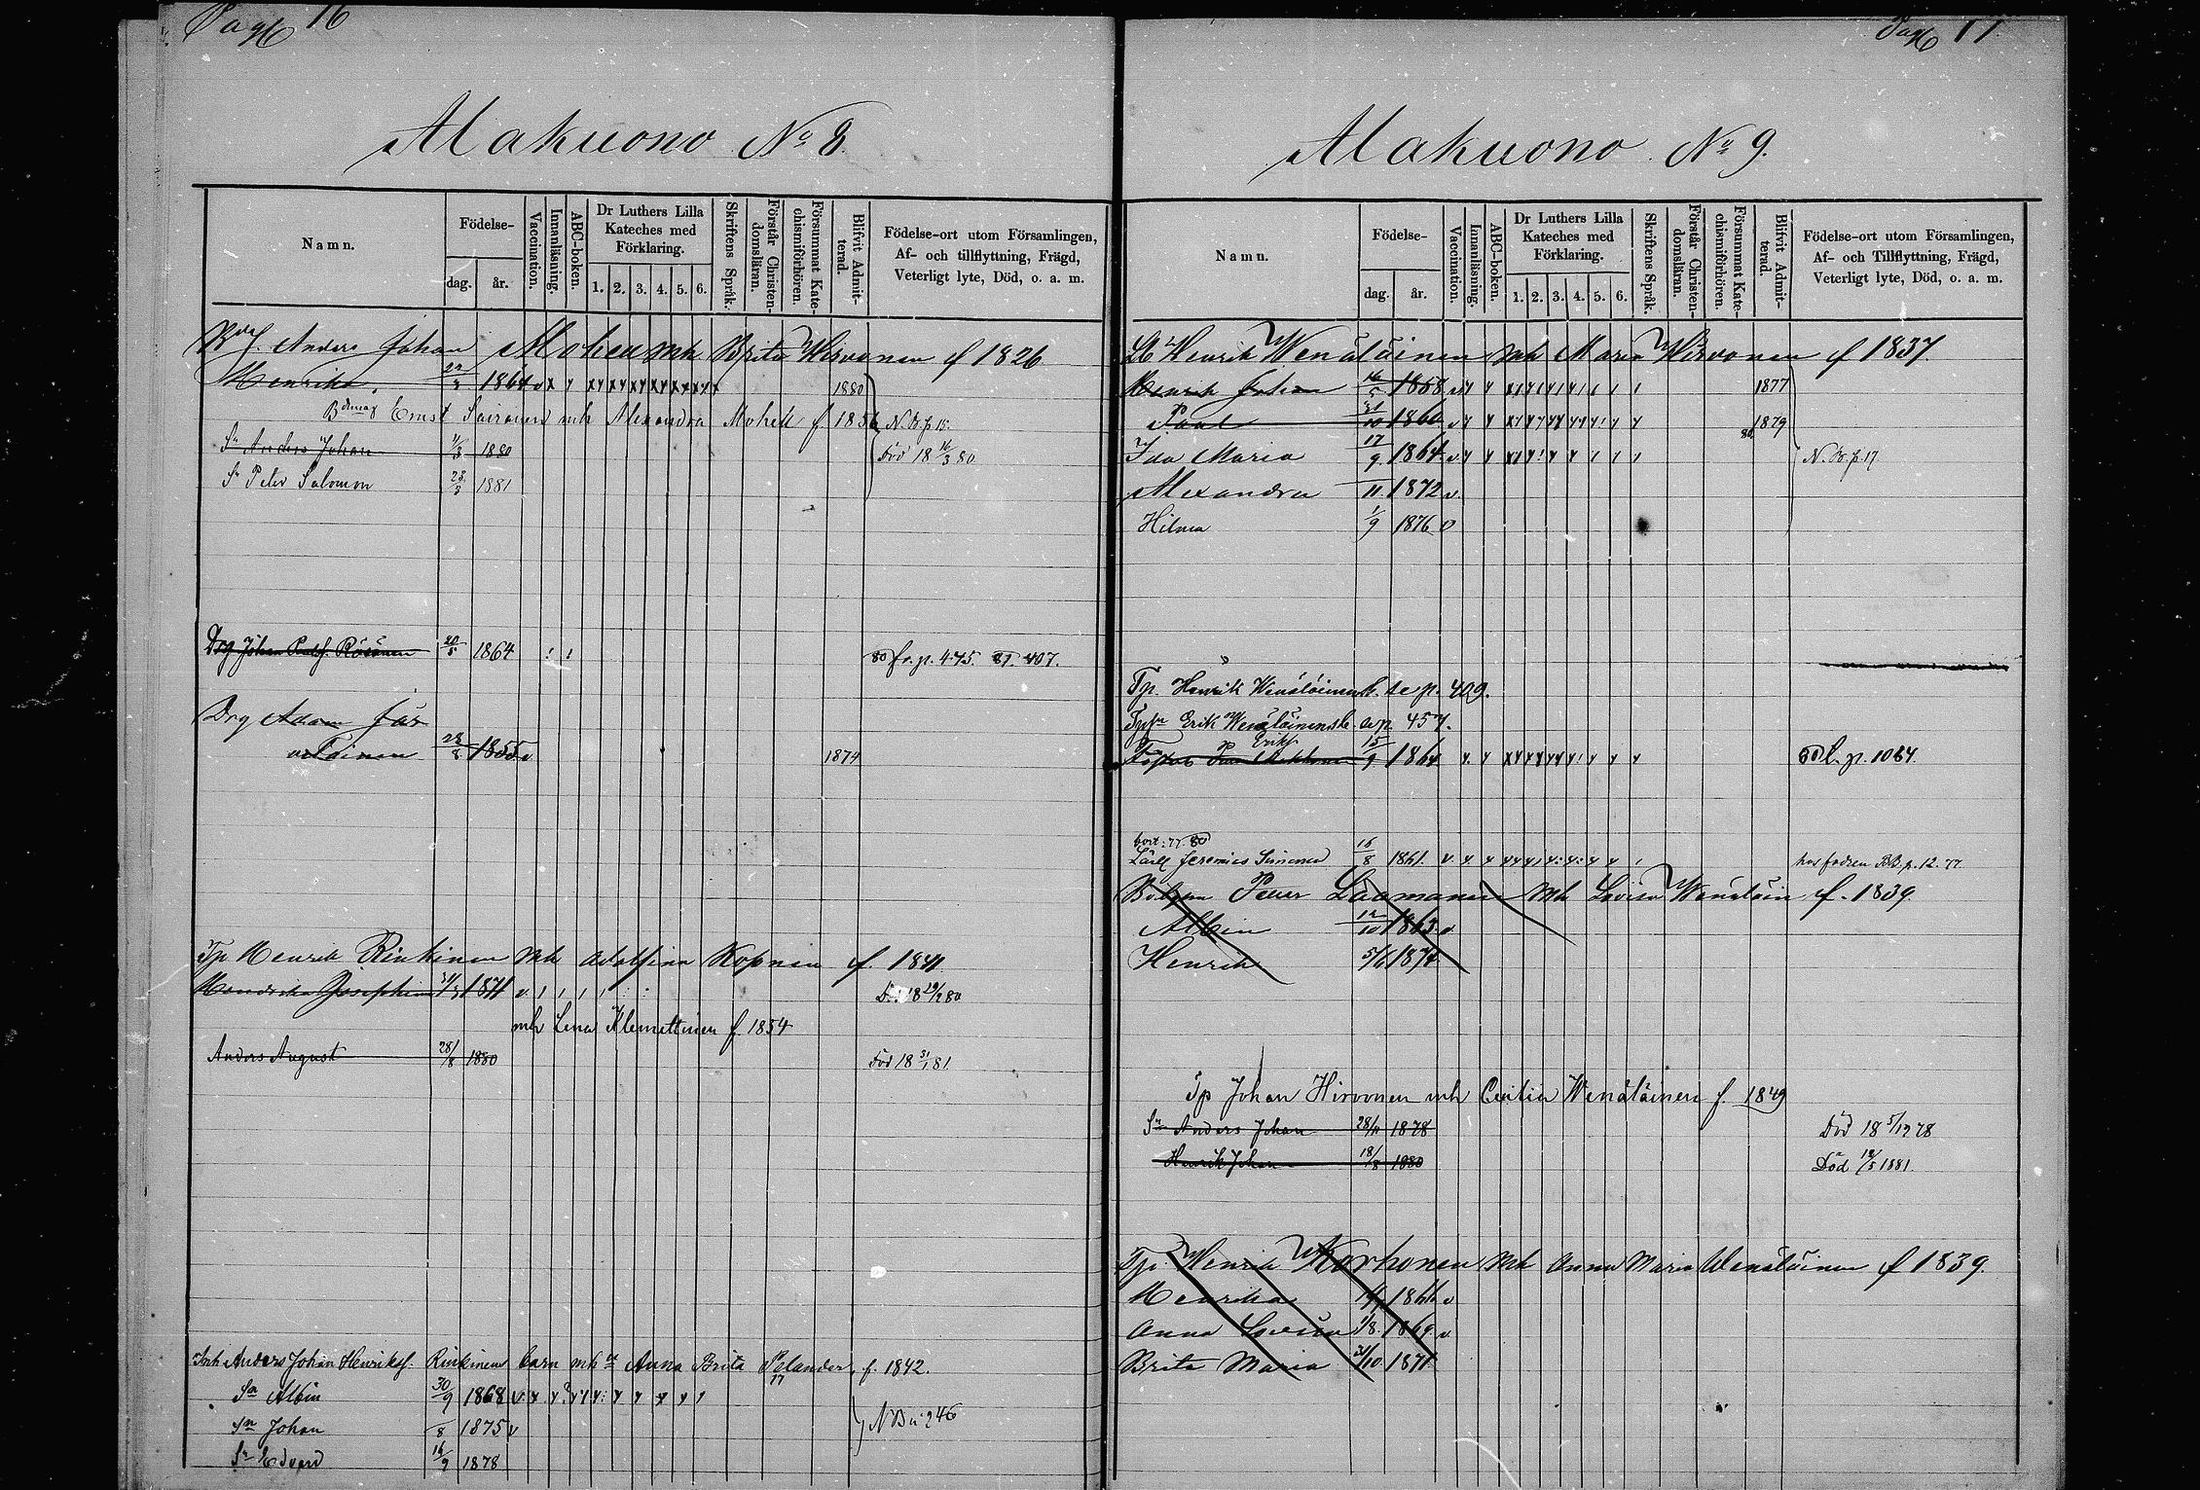 Pag 16
Alakuono No 8.
Namn.
Födelse-
dag.
år.
Vaccination.
Innanläsning.
ABC-boken.
Dr Luthers Lilla
Kateches med
Förklaring.
1. 2. 3. 4. 5. 6.
Skriftens Språk.
Förstår Christen-
domsläran.
Försummat Kate-
chismiförhören.
Blifvit Admit-
terad.
Födelse-ort utom Församlingen,
Af- och tillflyttning, Frägd,
Veterligt lyte, Död, o. a. m.
Anders Johan Mohell mh Brita Hirvonen f 1826
Henrika 1864 v 1880
Ernst Sairanen mh Alexandra Mohell f 1856 N.B. p 15.
Sn Anders Johan 1/3 1880 Död 18 16/3 80
Sn Peter Salomon 23/3 1881
Drg Johan Räsänen 20/5 1864 80 fr. p. 475. 81. 407.
Drg Adam
1855 v 1874
Tp Henrik Rinkinen mh Adolfina Kopnin f. 1841
Josephina 1871 v 18 29/2 80
mh Lena Klemettinen f. 1854
Anders August 28/8 1880 Död 18 31/1 81.
Inh Anders Johan Henrikss. Rinkinens barn mh Anna Brita Pelander, f. 1842.
Sn Albin 30/9 1868 v
Sn Johan 8 1875 v NB 246
Sn Edvard 16/9 1878
Pag 17
Alakuono No 9.
Namn.
Födelse-
dag.
år.
Vaccination.
Innanläsning.
ABC-boken.
Dr Luthers Lilla
Kateches med
Förklaring.
1. 2. 3. 4. 5. 6.
Skriftens Språk.
Förstår Christen-
domsläran.
Försummat Kate-
chismiförhören.
Blifvit Admit-
terad.
Födelse-ort utom Församlingen,
Af- och Tillflyttning, Frägd,
Veterligt lyte, Död, o. a. m.
Henrik Wenäläinen mh Maria Hirvonen f 1837
Henrik Johan 16/5 1858 1877
Paul 31/10 1860 v 1879
Ida Maria 17/9 1864 v N.B. p 17
Alexandra 11 1872 v.
Hilma 1/9 1876 v
Tp. Henrik Wenäläinen se p. 409.
Erik Wenäläinen se p. 457.
15/9 1864 80 p. 1064.
bort: 77. 80
Jeremias 16/8 1861. v B.B. p. 12. 77
Peter Laamanen mh Lovisa Wenäläin f. 1839.
Albin 12/10 1863 v
Henrik 5/6 1874
Tp Johan Hirvonen mh Cecilia Wenäläinen f. 1849
Sn Anders Johan 28/11 1878 Död 18 5/12 78
Henrik Johan 18/8 1880 Död 18/5 1881.
Tp. Henrik Korhonen mh Anna Maria Wenäläinen f 1839.
Henrika 1866 v
Anna Lovisa 1/8. 1869. v
Brita Maria 31/10. 1871.